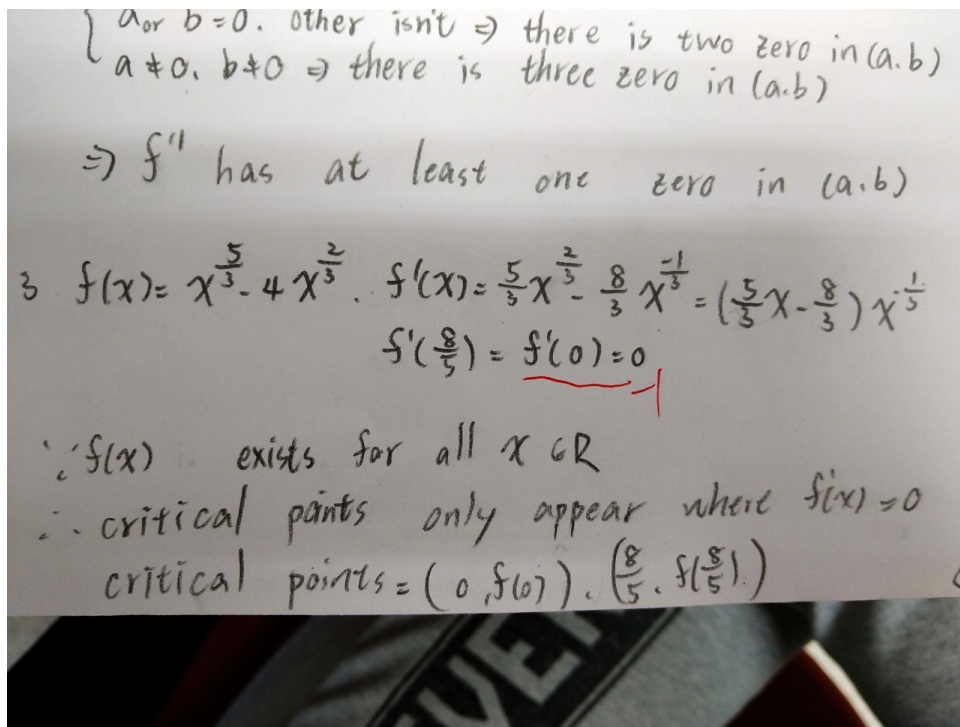 a or b=0. other isn't ⇒ there is two zero in (a.b)
a≠0. b≠0 ⇒ there is three zero in (a.b)
⇒ f'' has at least one zero in (a.b)
3 f(x)= x^(5/3) - 4x^(2/3). f'(x)= 5/3 x^(2/3) - 8/3 x^(-1/3) = (5/3 x - 8/3) x^(-1/3)
f'(8/5) = f'(0)=0
-1
∵ f(x) exists for all x ∈ R
∴ critical points only appear where f'(x)=0
critical points = (0, f(0)). (8/5. f(8/5).)
EVE